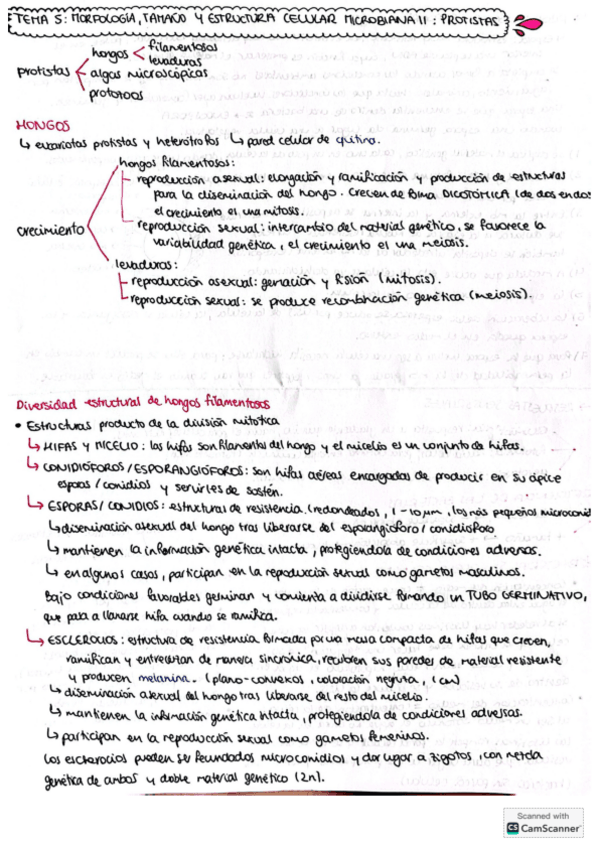 TEMA 5: MORFOLOGÍA, TAMAÑO Y ESTRUCTURA CELULAR MICROBIANA II: PROTISTAS
protistas
hongos
filamentosos
levaduras
algas microscópicas
protozoos
HONGOS
↳ eucariotas protistas y heterótrofos ↳ pared celular de quitina.
crecimiento
hongos filamentosos:
reproducción asexual: elongación y ramificación y producción de estructuras
para la diseminación del hongo. Crecen de forma DICOTÓMICA (de dos en dos
el crecimiento es una mitosis.
reproducción sexual: intercambio del material genético, se favorece la
variabilidad genética, el crecimiento es una meiosis.
levaduras:
reproducción asexual: gemación y fisión (mitosis).
reproducción sexual: se produce recombinación genética (meiosis).
Diversidad estructural de hongos filamentosos
• Estructuras producto de la división mitótica
↳ HIFAS Y MICELIO: las hifas son filamentos del hongo y el micelio es un conjunto de hifas.
↳ CONIDIÓFOROS / ESPORANGIÓFOROS: son hifas aéreas encargadas de producir en su ápice
esporas / conidios y servirles de sostén.
↳ ESPORAS / CONIDIOS: estructuras de resistencia. (redondeados, 1-10 μm, los más pequeños microconid
↳ diseminación asexual del hongo tras liberarse del esporangióforo / conidióforo
↳ mantienen la información genética intacta, protegiéndola de condiciones adversas.
↳ en algunos casos, participan en la reproducción sexual como gametos masculinos.
Bajo condiciones favorables germinan y comienza a dividirse formando un TUBO GERMINATIVO,
que pasa a llamarse hifa cuando se ramifica.
↳ ESCLEROCIOS: estructura de resistencia formada por una masa compacta de hifas que crecen,
ramifican y entrecruzan de manera sincrónica, recubren sus paredes de material resistente
y producen melanina. (plano-convexos, coloración negruzca, 1cm)
↳ diseminación asexual del hongo tras liberarse del resto del micelio.
↳ mantienen la información genética intacta, protegiéndola de condiciones adversas.
↳ participan en la reproducción sexual como gametos femeninos.
Los esclerocios pueden ser fecundados microconidios y dar lugar a zigotos, con mezcla
genética de ambos y doble material genético (2n).
Scanned with
CS CamScanner